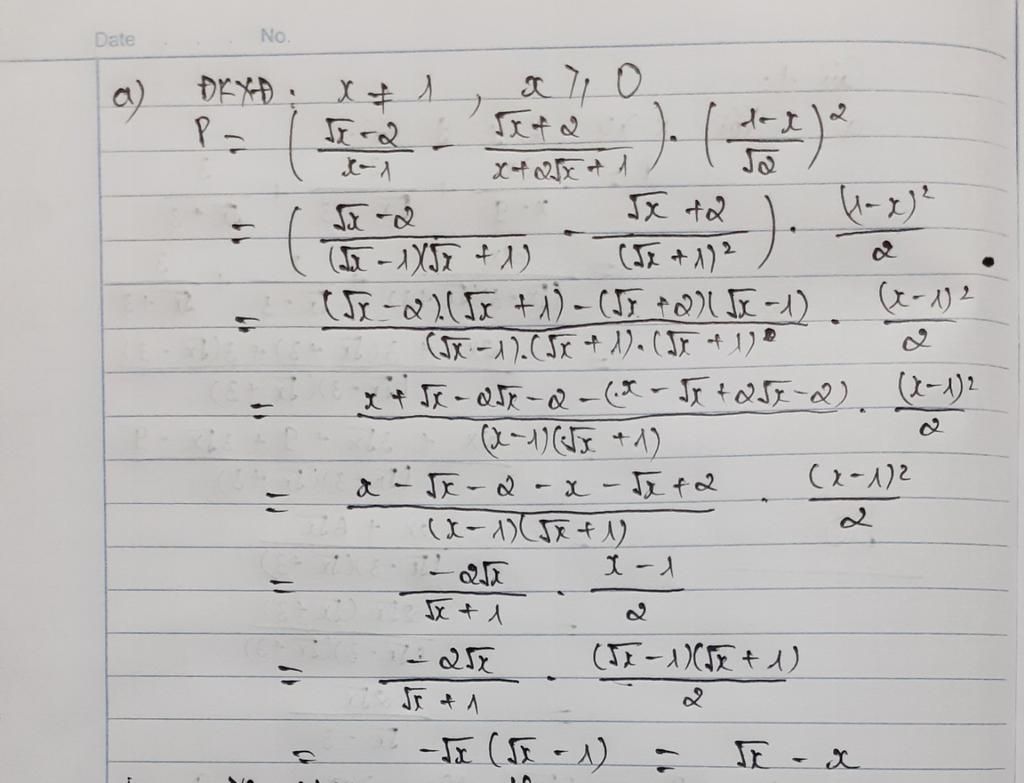 Date No.
a) ĐKXĐ: x ≠ 1, x ⩾ 0
P = ( (√x - 2)/(x - 1) - (√x + 2)/(x + 2√x + 1) ) . ( (1 - x)/√2 )²
= ( (√x - 2)/((√x - 1)(√x + 1)) - (√x + 2)/((√x + 1)²) ) . (1 - x)²/2
= ((√x - 2).(√x + 1) - (√x + 2)(√x - 1))/((√x - 1).(√x + 1).(√x + 1)) . (x - 1)²/2
= (x + √x - 2√x - 2 - (x - √x + 2√x - 2))/((x - 1)(√x + 1)) . (x - 1)²/2
= (x - √x - 2 - x - √x + 2)/((x - 1)(√x + 1)) . (x - 1)²/2
= (-2√x)/(√x + 1) . (x - 1)/2
= (-2√x)/(√x + 1) . ((√x - 1)(√x + 1))/2
= -√x (√x - 1) = √x - x